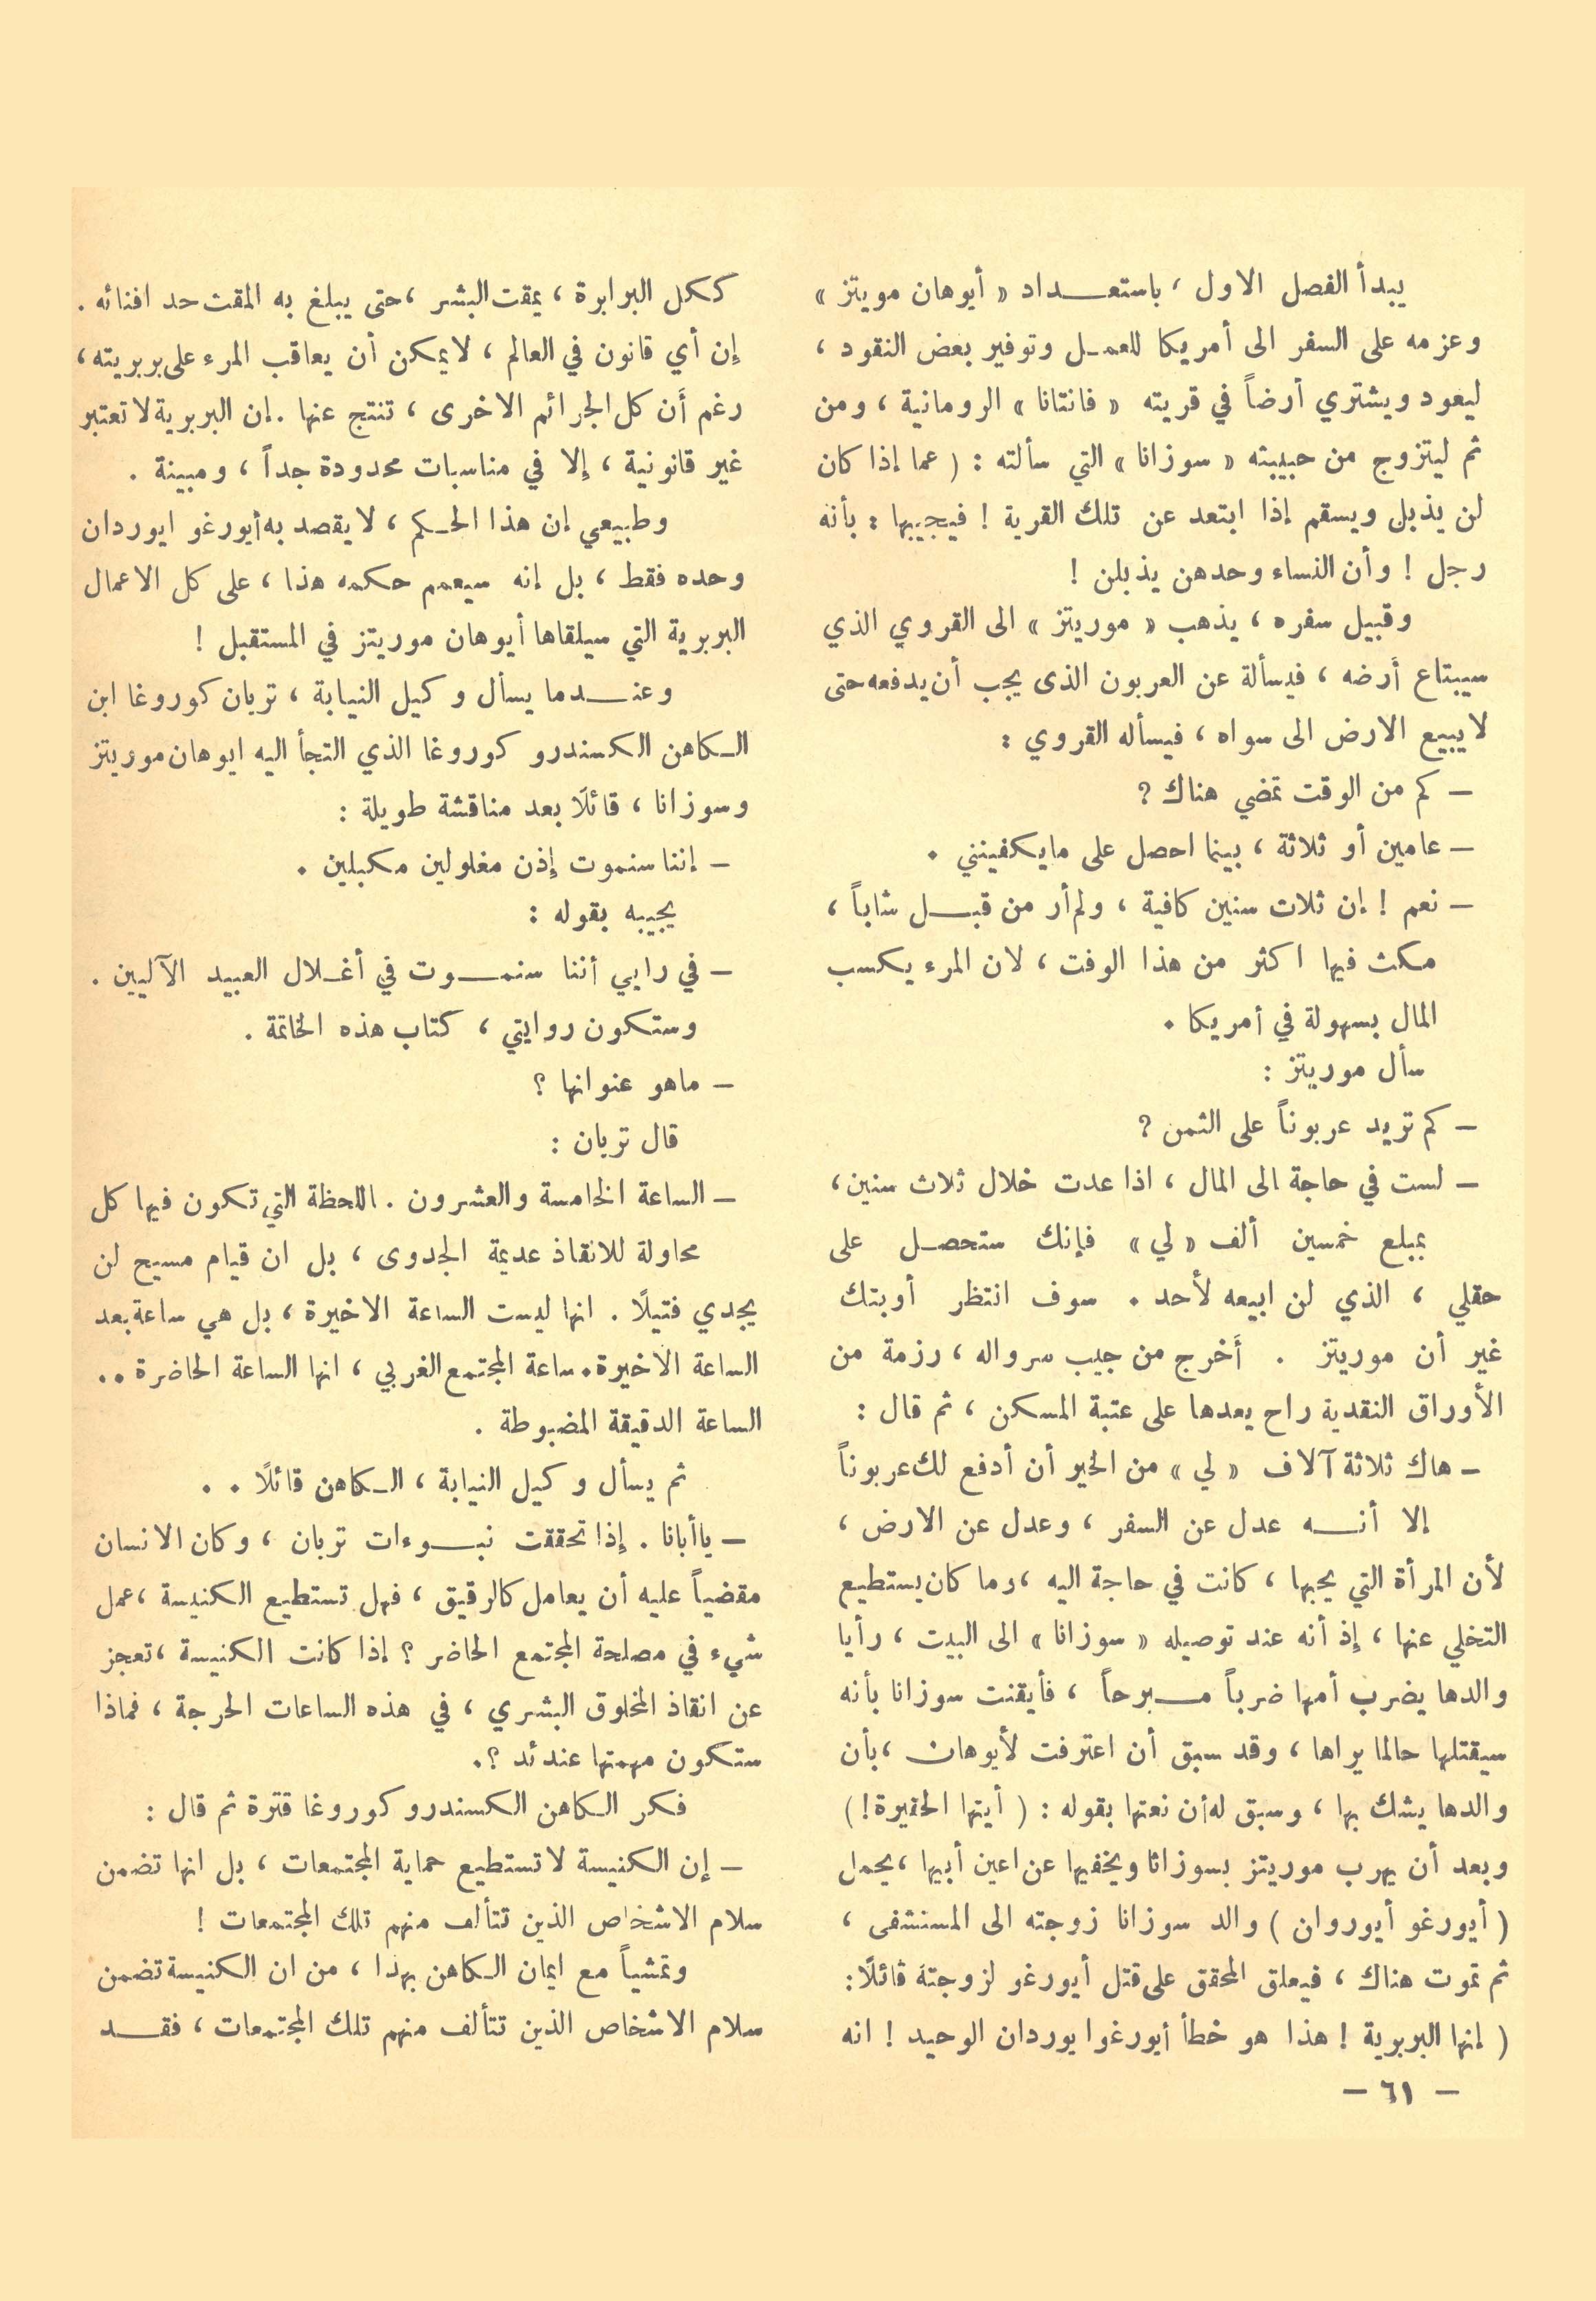 يبدأ الفصل الاول ، باستعـــداد « أيوهان مويتز »
وعزمه على السفر الى أمريكا للعمـل وتوفير بعض النقود ،
ليعود ويشتري أرضاً في قريته « فانتانا » الرومانية ، ومن
ثم ليتزوج من حبيبته « سوزانا » التي سألته : ( عما إذا كان
لن يذبل ويسقم إذا ابتعد عن تلك القرية ! فيجيبها : بأنه
رجل ! وأن النساء وحدهن يذبلن !
وقبيل سفره ، يذهب « موريتز » الى القروي الذي
سيبتاع أرضه ، فيسألة عن العربون الذى يجب أن يدفعه حتى
لا يبيع الارض الى سواه ، فيسأله القروي :
— كم من الوقت تمضي هناك ?
— عامين أو ثلاثة ، بينما احصل على مايكفينني .
— نعم ! إن ثلاث سنين كافية ، ولم أر من قبـــل شاباً ،
مكث فيها اكثر من هذا الوقت ، لان المرء يكسب
المال بسهولة في أمريكا .
سأل موريتز :
— كم تريد عربوناً على الثمن ?
— لست في حاجة الى المال ، اذا عدت خلال ثلاث سنين ،
بمبلغ خمسين ألف « لي » فإنك ستحصـل على
حقلي ، الذي لن ابيعه لأحد . سوف انتظر أوبتك
غير أن موريتز . أخرج من جيب سرواله ، رزمة من
الأوراق النقدية راح يعدها على عتبة المسكن ، ثم قال :
— هاك ثلاثة آلاف « لي » من الخير أن أدفع لك عربوناً
إلا أنـــه عدل عن السفر ، وعدل عن الارض ،
لأن المرأة التي يحبها ، كانت في حاجة اليه ، وما كان يستطيع
التخلي عنها ، إذ أنه عند توصيله « سوزانا » الى البيت ، رأيا
والدها يضرب أمها ضرباً مـــبرحاً ، فأيقنت سوزانا بأنه
سيقتلها حالما يراها ، وقد سبق أن اعترفت لأيوهان ، بأن
والدها يشك بها ، وسبق له أن نعتها بقوله : ( أيتها الحقيرة ! )
وبعد أن يهرب موريتز بسوزانا ويخفيها عن اعين أبيها ، يحمل
( أيورغو أيوروان ) والد سوزانا زوجته الى المستشفى ،
ثم تموت هناك ، فيعلق المحقق على قتل أيورغو لزوجته قائلًا :
( إنها البربرية ! هذا هو خطأ أيورغوا يوردان الوحيد ! انه
ككل البرابرة ، يمقت البشر ، حتى يبلغ به المقت حد افنائه .
إن أي قانون في العالم ، لا يمكن أن يعاقب المرء على بربريته ،
رغم أن كل الجرائم الاخرى ، تنتج عنها . إن البربرية لا تعتبر
غير قانونية ، إلا في مناسبات محدودة جداً ، ومبينة .
وطبيعي إن هذا الحـكم ، لا يقصد به أيورغو ايوردان
وحده فقط ، بل إنه سيعمم حكمه هذا ، على كل الاعمال
البربرية التي سيلقاها أيوهان موريتز في المستقبل !
وعنـــدما يسأل وكيل النيابة ، تريان كوروغا ابن
الـكاهن الكسندرو كوروغا الذي التجأ اليه ايوهان موريتز
وسوزانا ، قائلًا بعد مناقشة طويلة :
— إننا سنموت إذن مغلولين مكبلين .
يجيبه بقوله :
— في رايي أننا سنمـــوت في أغـلال العبيد الآليين .
وستكون روايتي ، كتاب هذه الخاتمة .
— ماهو عنوانها ؟
قال تريان :
— الساعة الخامسة والعشرون . اللحظة التي تكون فيها كل
محاولة للانقاذ عديمة الجدوى ، بل ان قيام مسيح لن
يجدي فتيلًا . انها ليست الساعة الاخيرة ، بل هي ساعة بعد
الساعة الاخيرة . ساعة المجتمع الغربي ، انها الساعة الحاضرة . .
الساعة الدقيقة المضبوطة .
ثم يسأل وكيل النيابة ، الـكاهن قائلًا . .
— ياأبانا . إذا تحققت نبـــوءات تريان ، وكان الانسان
مقضياً عليه أن يعامل كالرقيق ، فهل تستطيع الكنيسة ، عمل
شيء في مصلحة المجتمع الحاضر ؟ إذا كانت الكنيسة ، تعجز
عن انقاذ المخلوق البشري ، في هذه الساعات الحرجة ، فماذا
ستكون مهمتها عندئد ؟ .
فكر الـكاهن الكسندرو كوروغا فترة ثم قال :
— إن الكنيسة لا تستطيع حماية المجتمعات ، بل انها تضمن
سلام الاشخاص الذين تتألف منهم تلك المجتمعات !
وتمشياً مع ايمان الـكاهن بهذا ، من ان الكنيسة تضمن
سلام الاشخاص الذين تتألف منهم تلك المجتمعات ، فقـــد
— ٦١ —